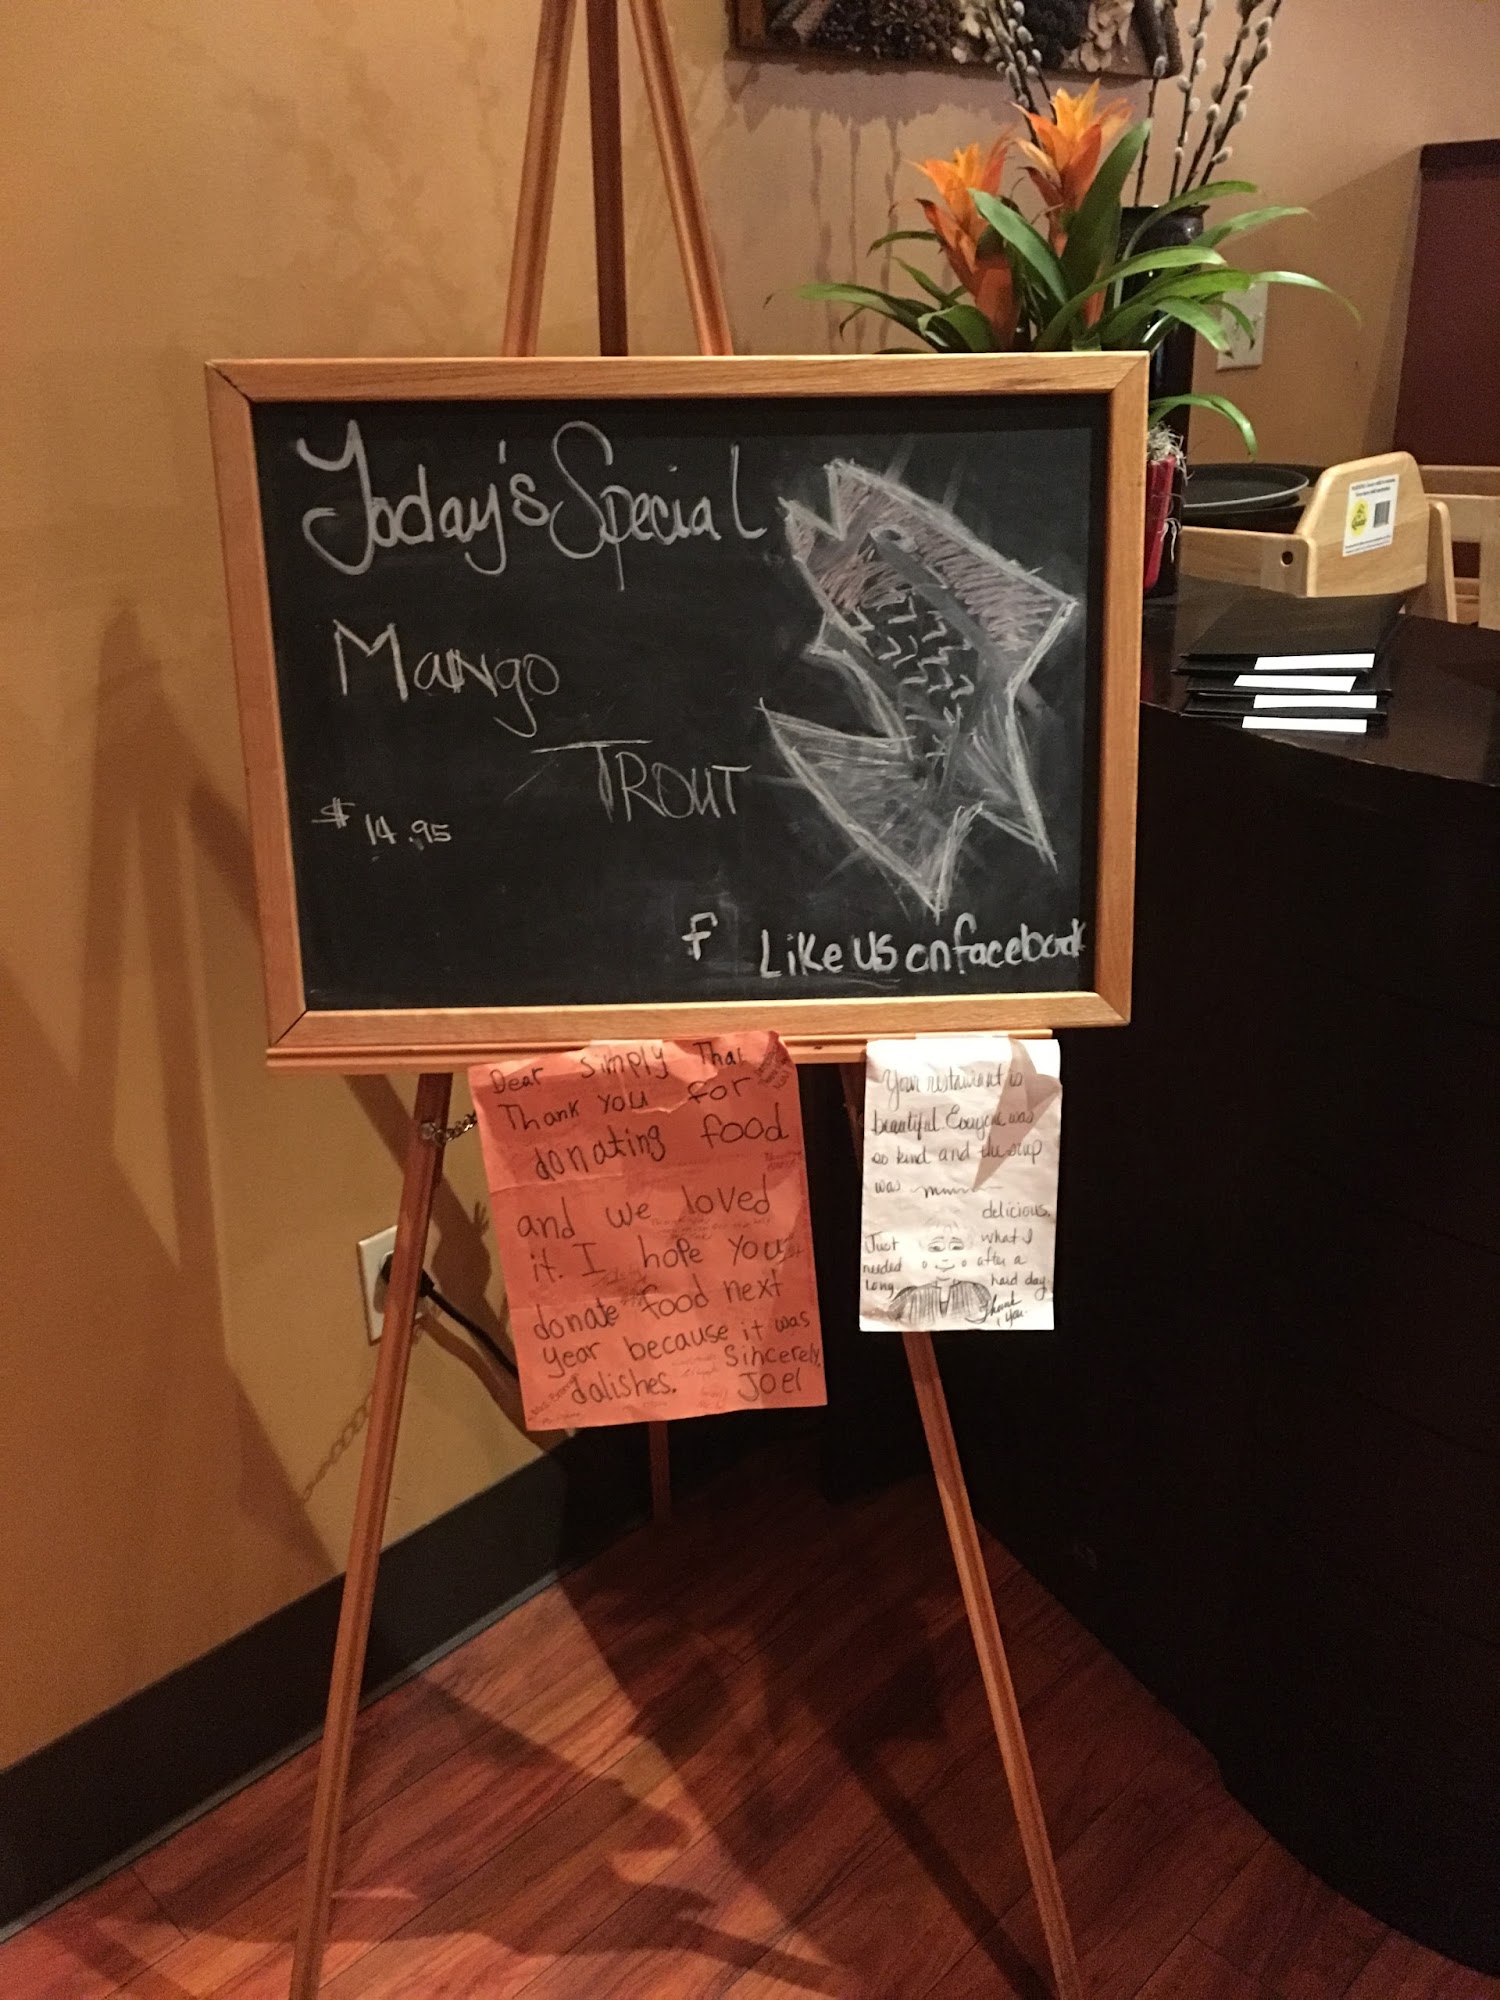 Today's Special
Mango
TROUT
$ 14.95
f Like us on facebook
Dear Simply Thai
Thank you for
donating food
and we loved
it. I hope you
donate food next
year because it was
dalishes. Sincerely,
Joel
Your restaurant is
beautiful. Everyone was
so kind and the soup
was mmm
delicious.
Just what I
needed after a
long hard day.
Thank
you.